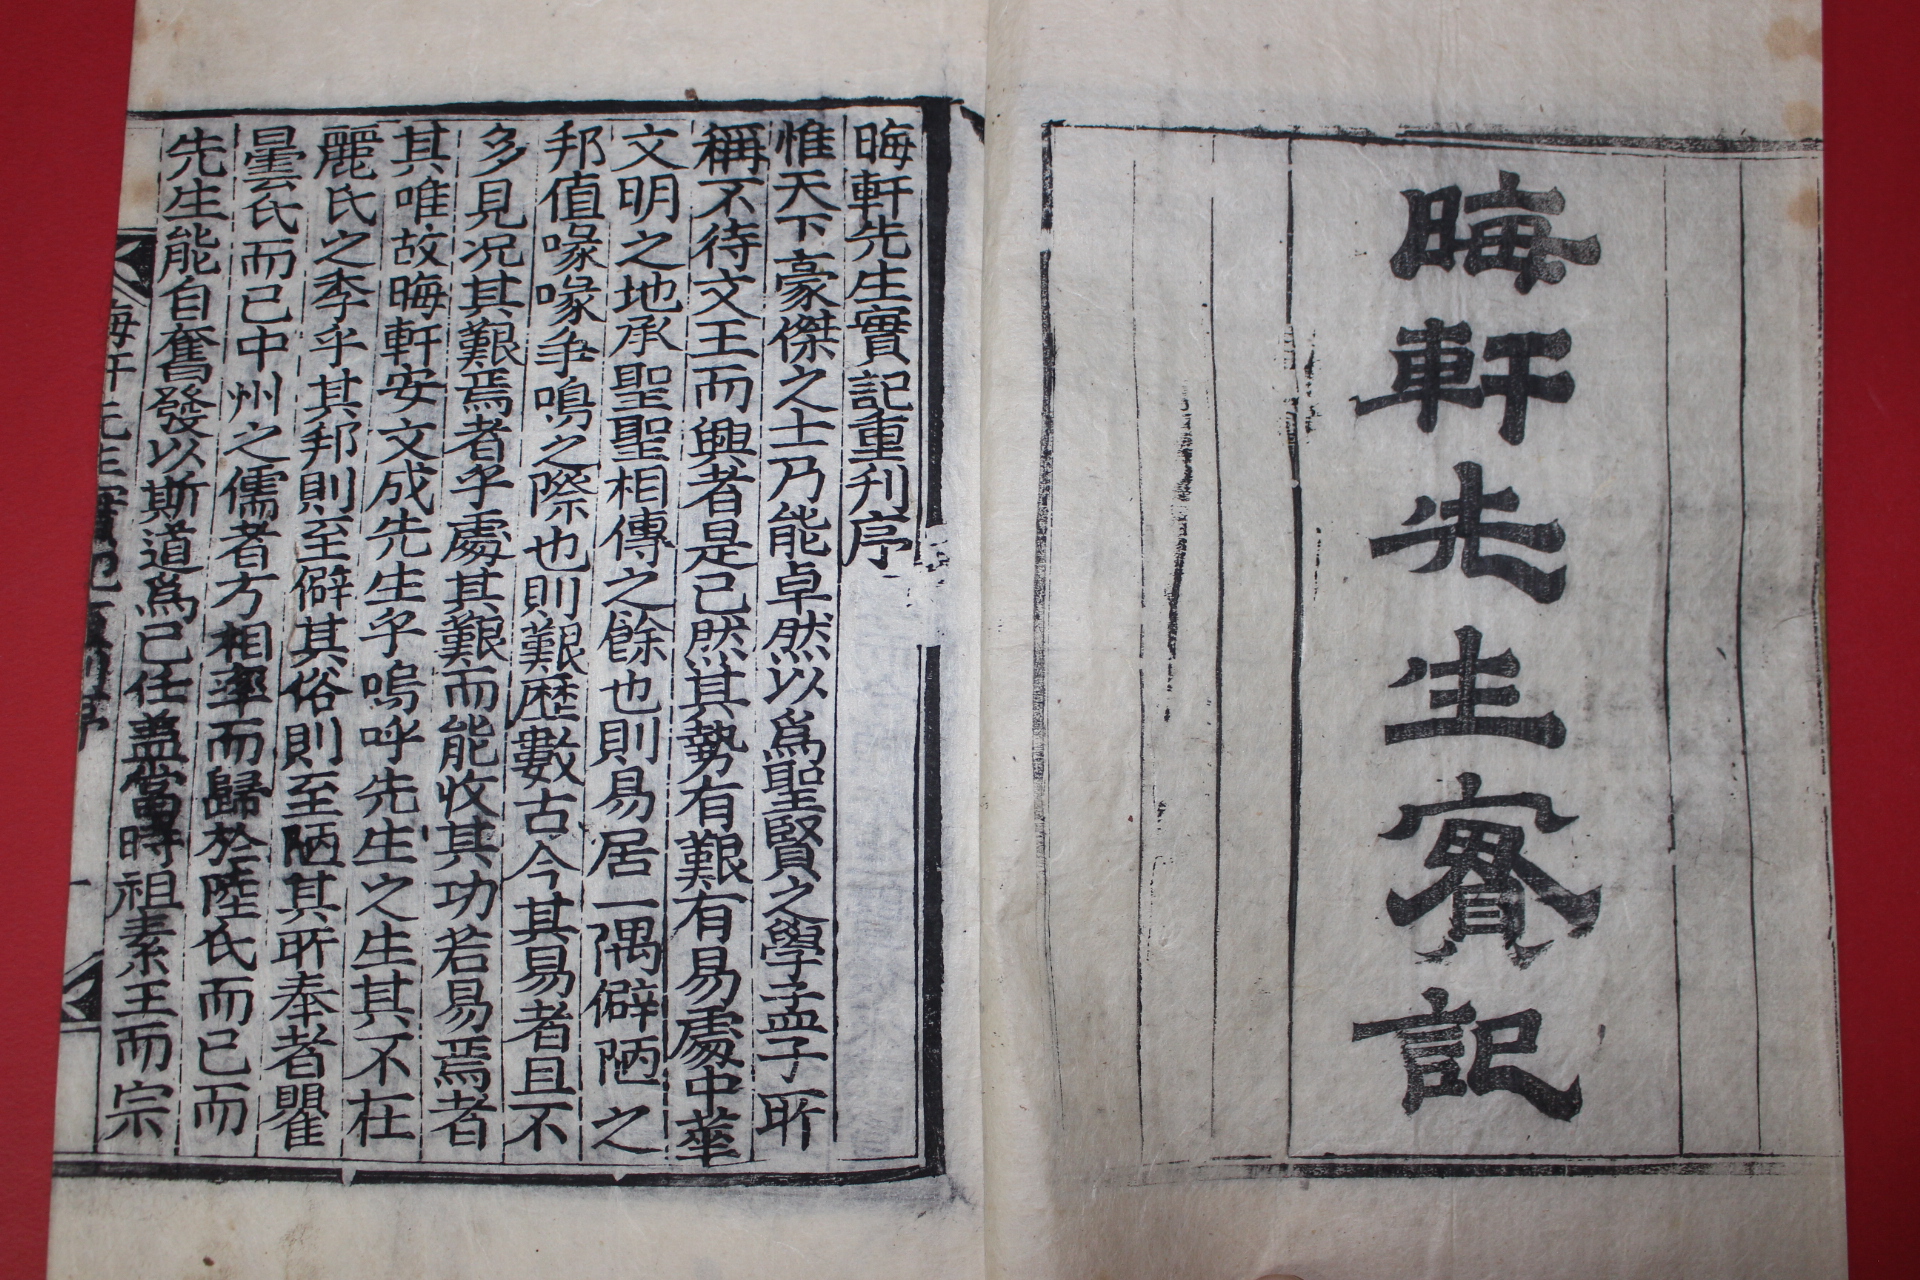 晦軒先生實記
晦軒先生實記重刊序
惟天下豪傑之士乃能卓然以爲聖賢之學孟子所
稱不待文王而興者是已然其勢有艱有易處中華
文明之地承聖聖相傳之餘也則易居一隅僻陋之
邦值喙喙爭鳴之際也則艱歷數古今其易者且不
多見况其艱焉者乎處其艱而能收其功若易焉者
其唯故晦軒安文成先生乎嗚呼先生之生其不在
麗氏之季乎其邦則至僻其俗則至陋其所奉者瞿
曇氏而已中州之儒者方相率而歸於陸氏而已而
先生能自奮發以斯道爲己任蓋當時祖素王而宗
晦軒先生實記 重刊序 一